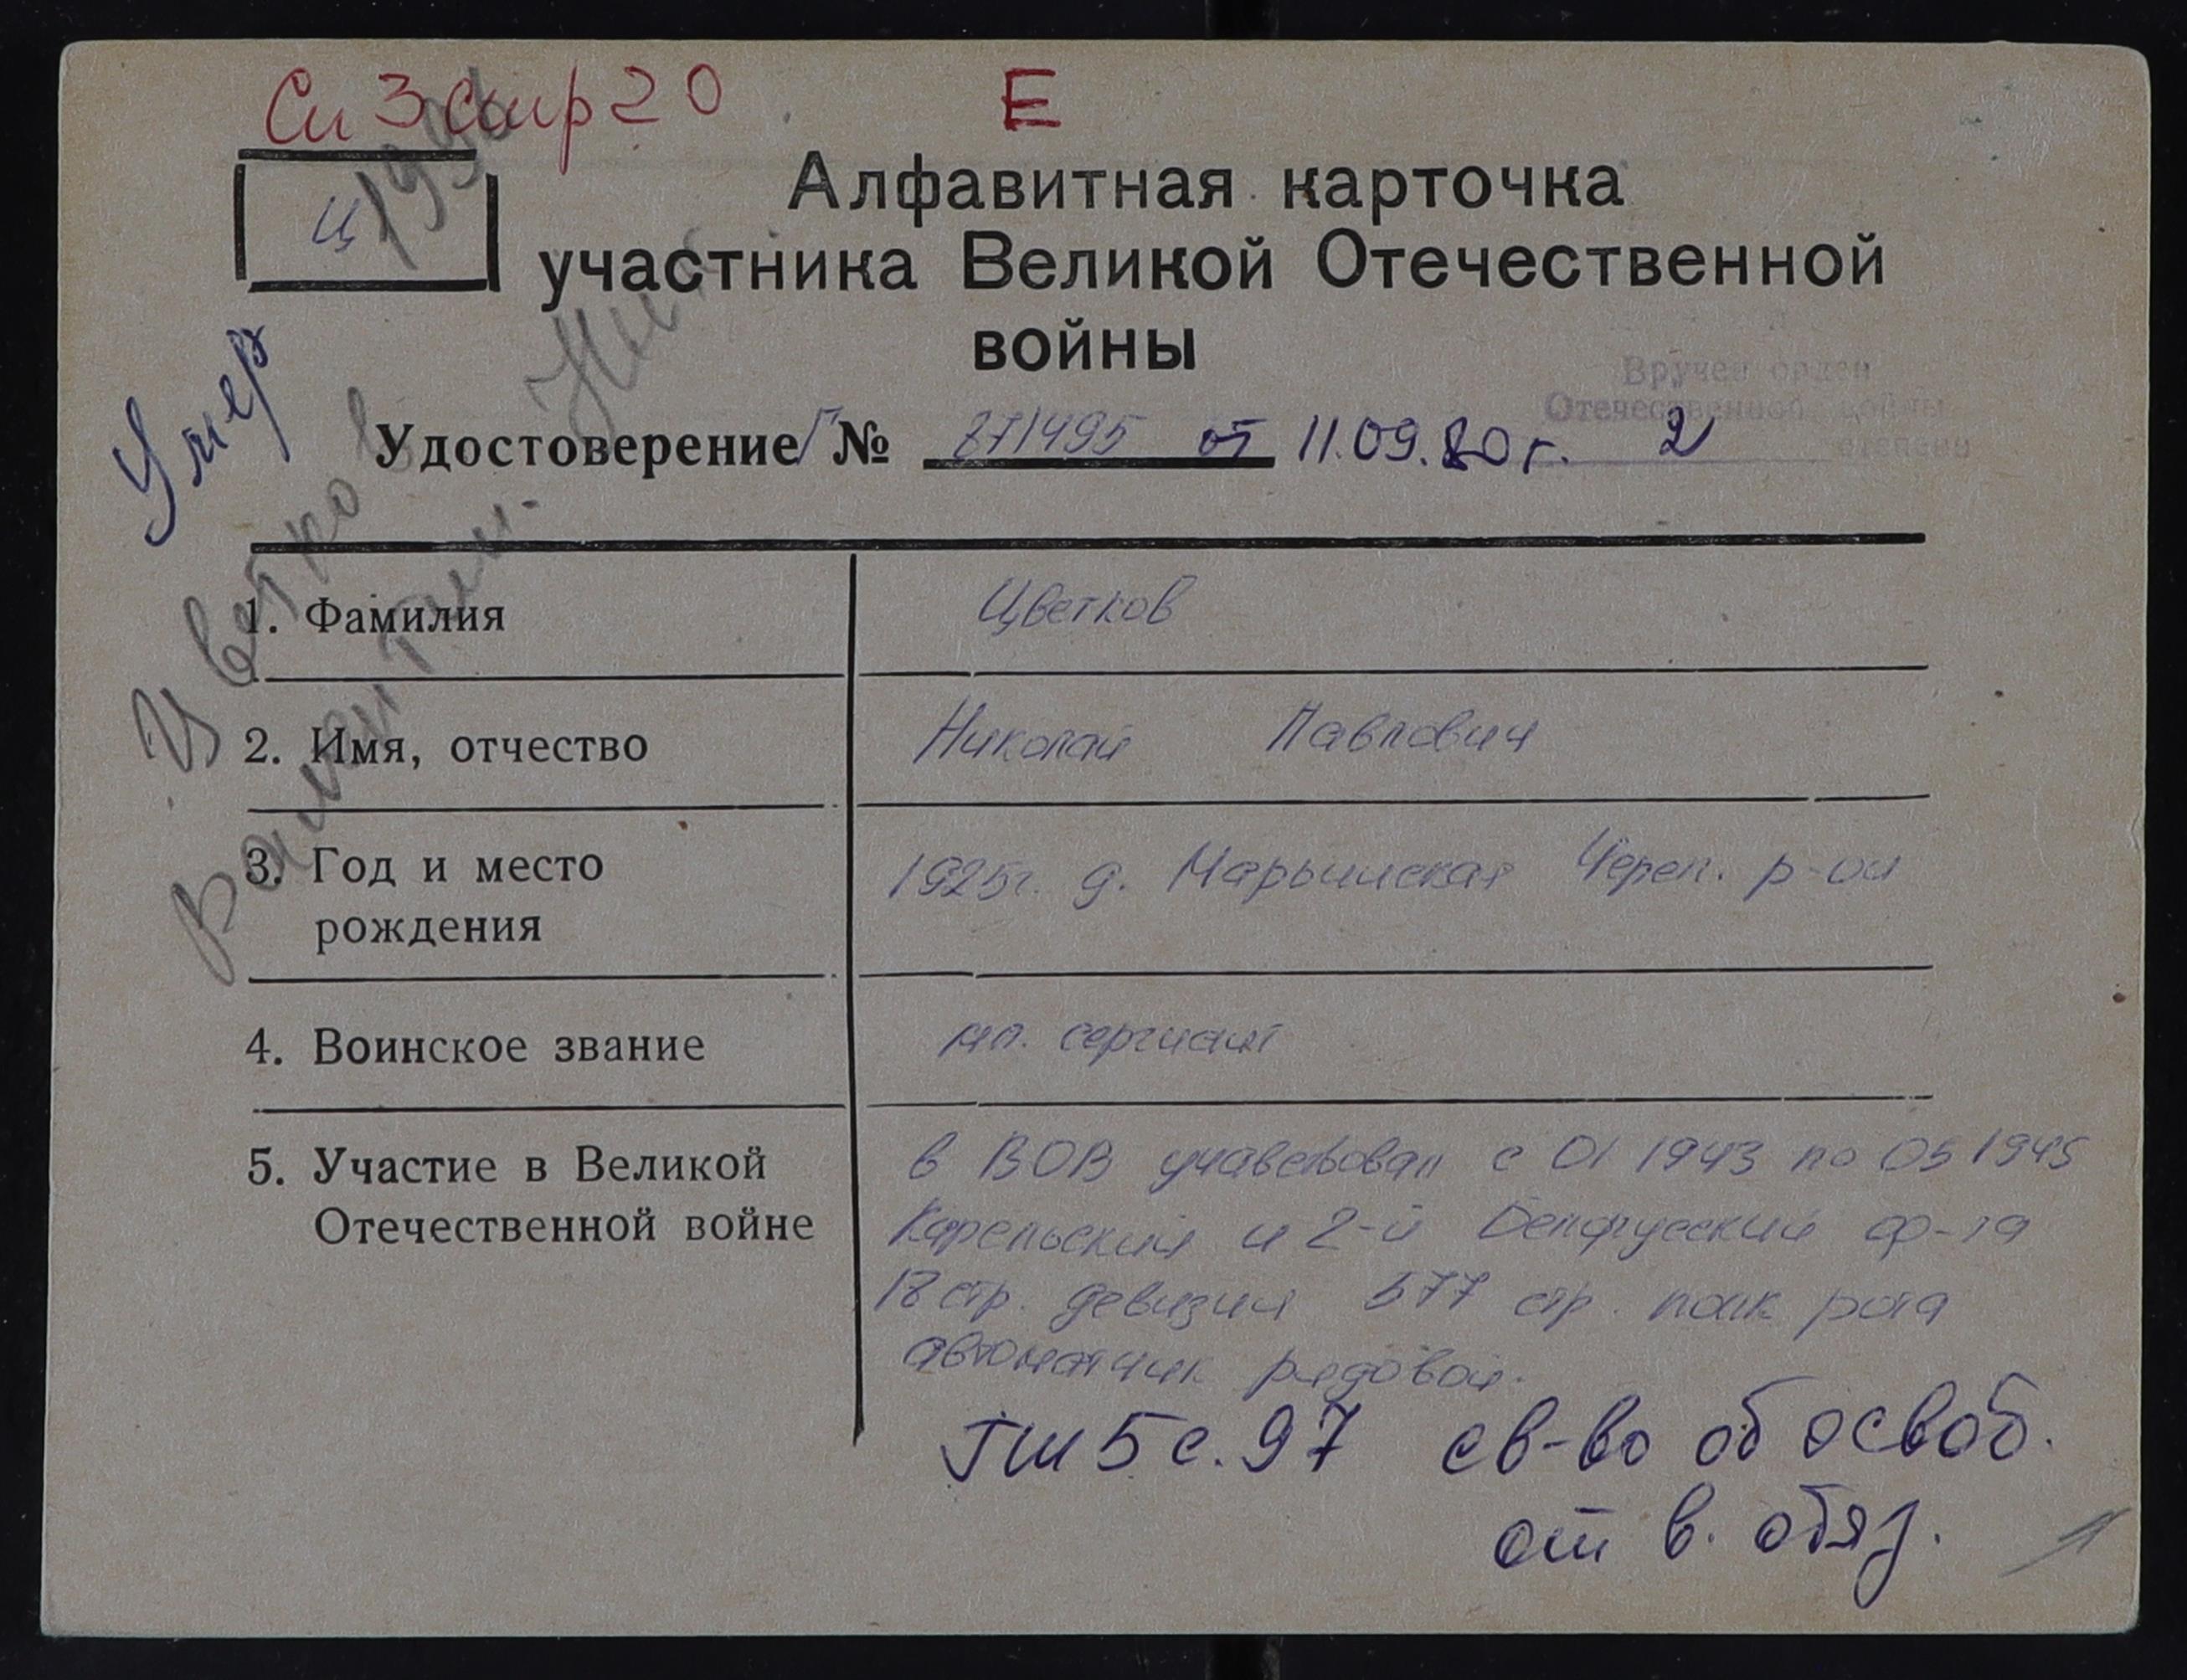 Сп 3 стр 20 Е
Ц
Алфавитная карточка
участника Великой Отечественной
войны
Умер
Вручен орден
Отечественной войны
2 степени
Удостоверение Г № 271495 от 11.09.80 г.
Цветков
Валентин
1. Фамилия Цветков
2. Имя, отчество Николай Павлович
3. Год и место 1925г. д. Марьинская Череп. р-он
рождения
4. Воинское звание мл. сержант
5. Участие в Великой в ВОВ участвовал с 01 1943 по 05 1945
Отечественной войне Карельский и 2-й Белорусский ф-та
18 стр. девизия 577 стр. полк рота
автоматчик рядовой.
ГШ 5 с. 97 св-во об освоб.
от в. обяз.